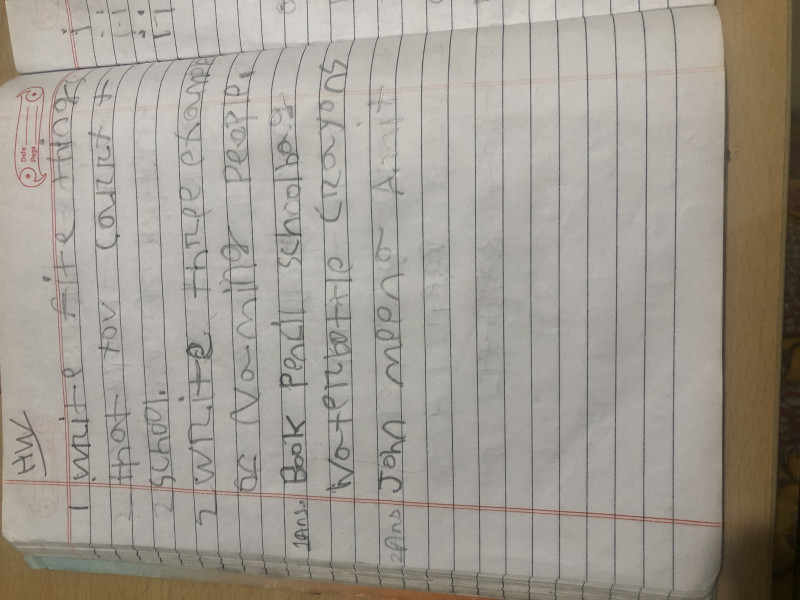 Date
Page
HW
1 write fite things
that you carry t
2 school.
2 write three examp
of Naming people.
1Ans. Book Pencil schoolbag
Waterbottle Crayons
2Ans John meena Amit